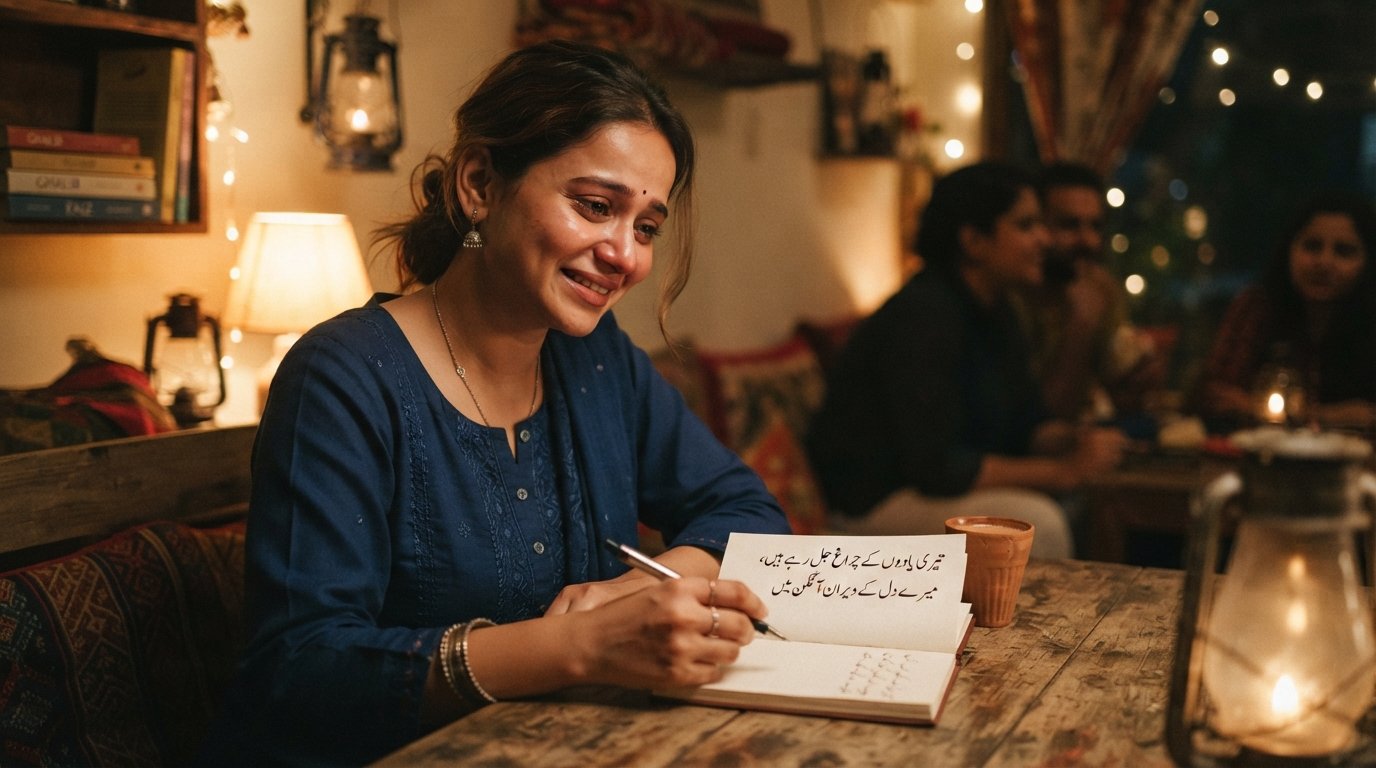 GHALIB
GHALIB
FAIZ
تیری یادوں کے چراغ جل رہے ہیں،
میرے دل کے ویران آنگن میں